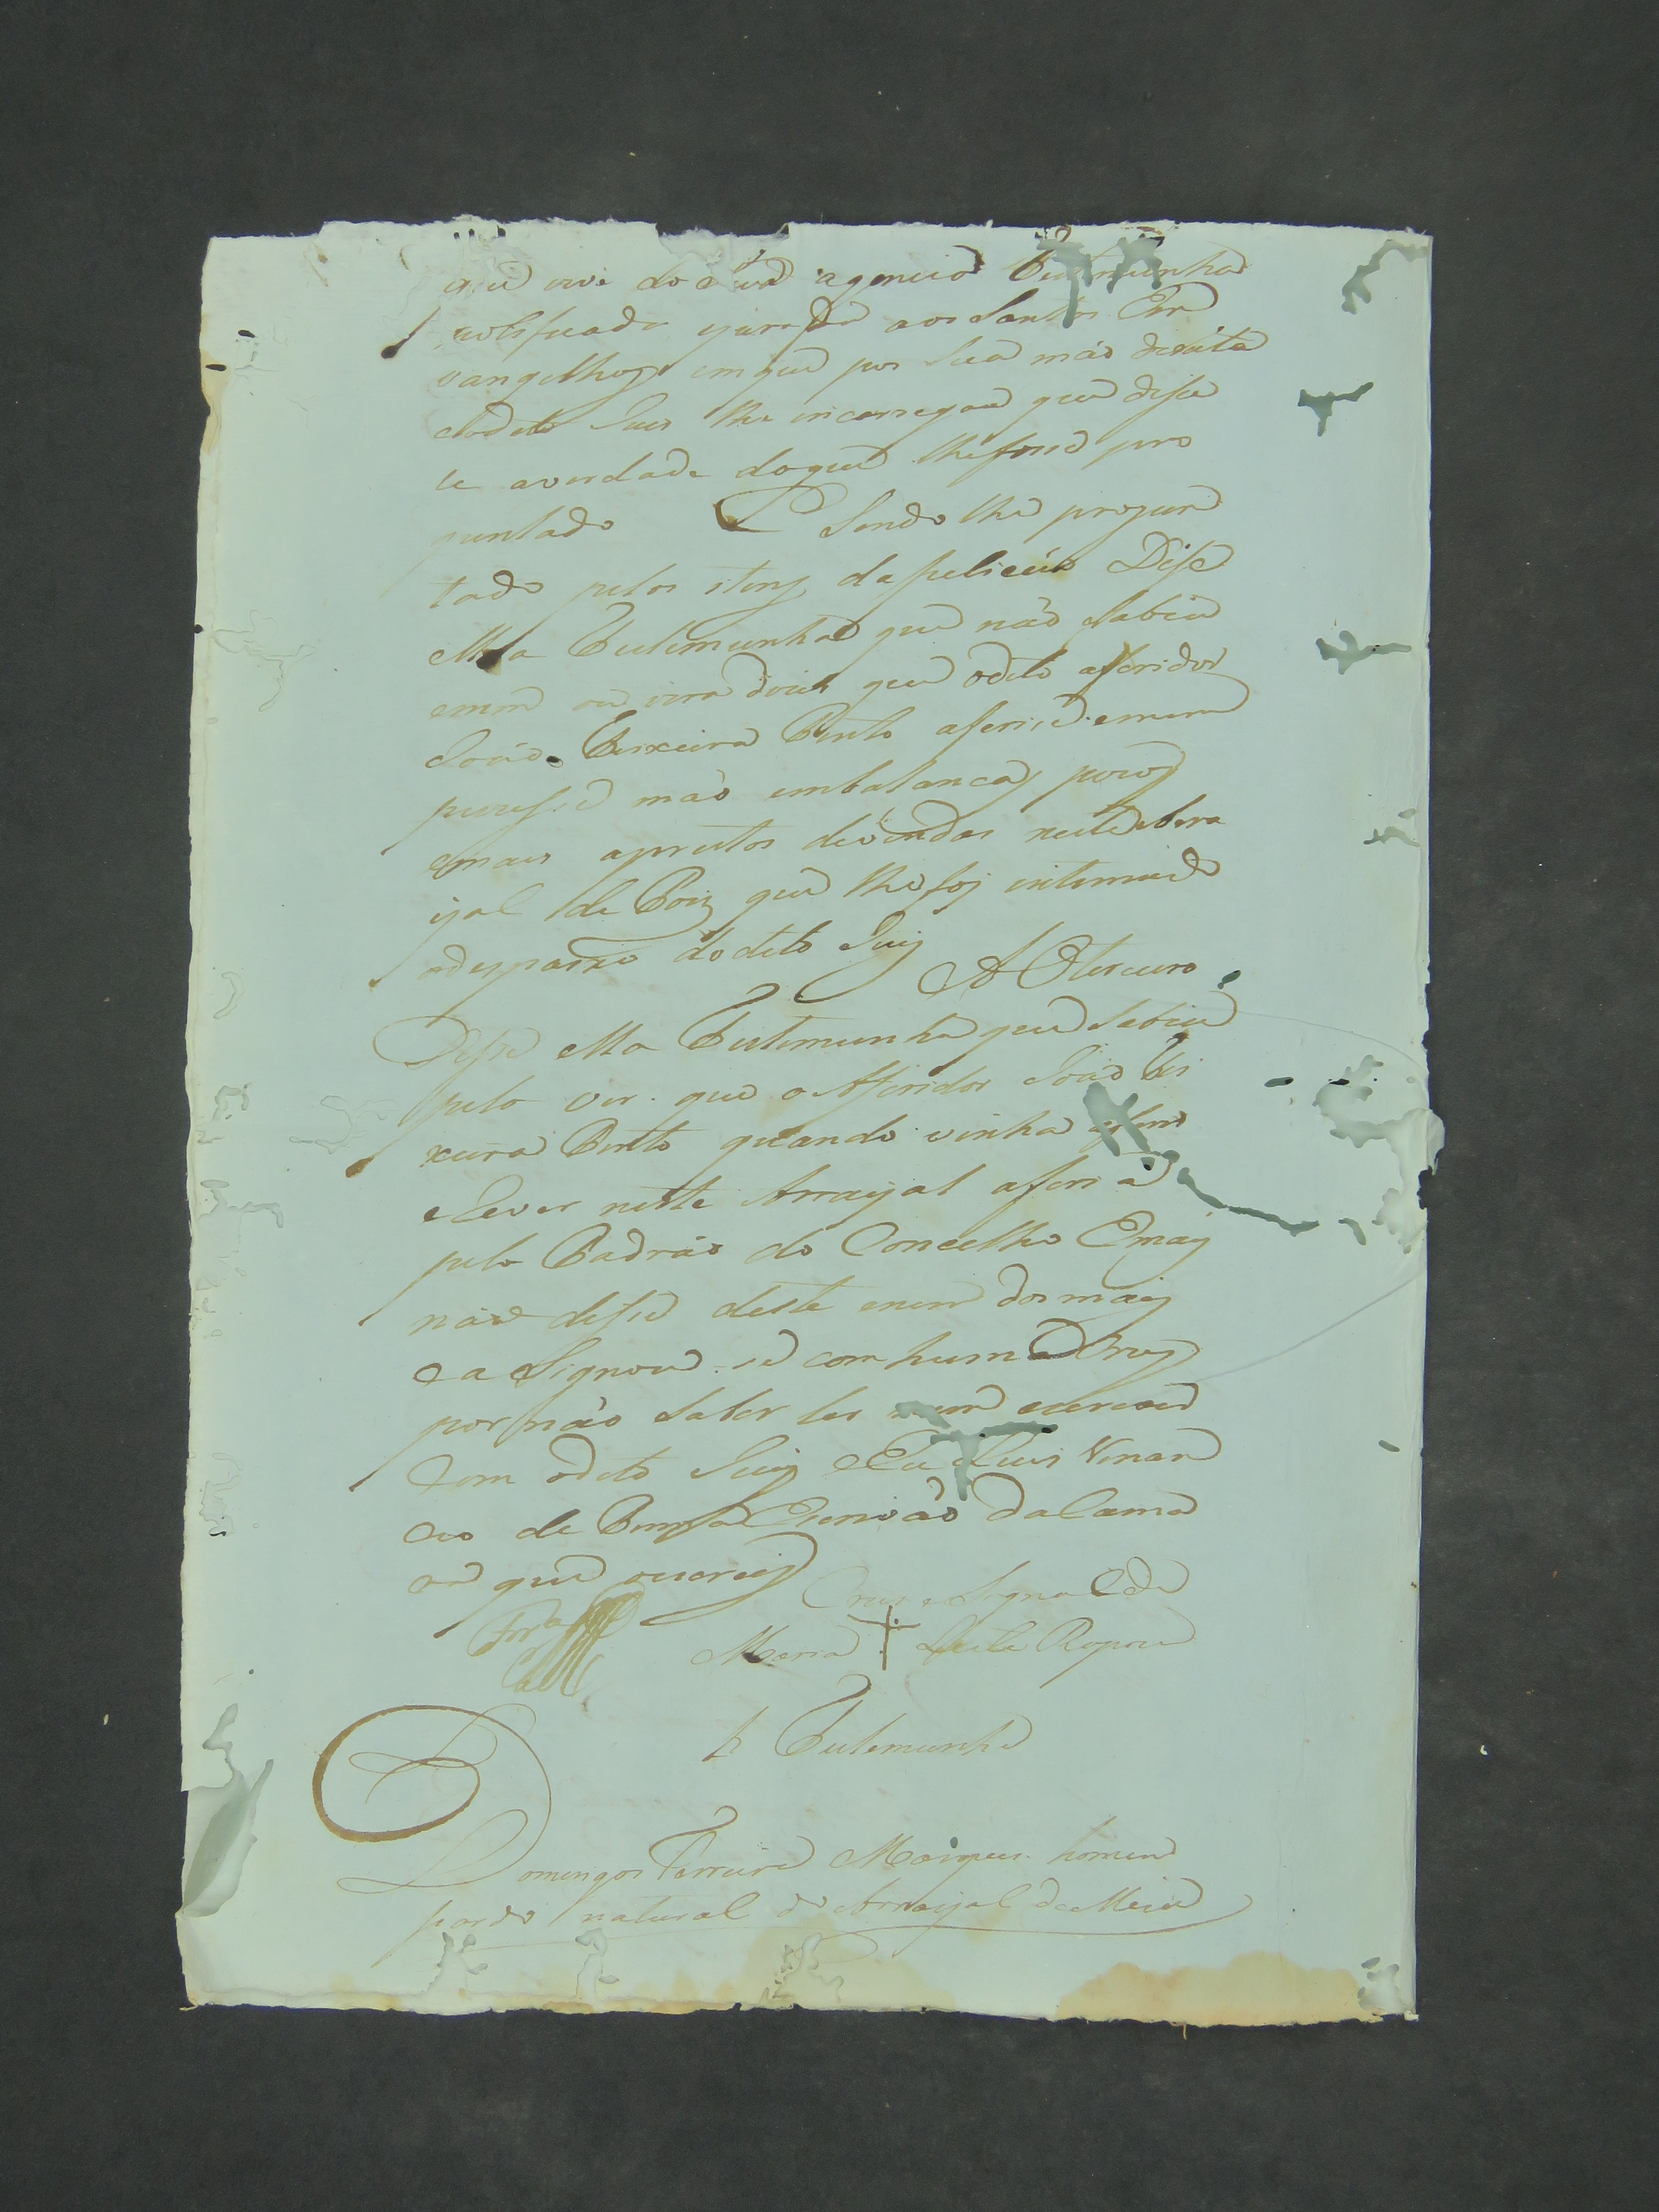 que vive de sua agencia Testemunha
notificada ejurada aos Santos Eva
vangelhos em que pos sua mão direita
edodito Juis lhe incarregou que dise
se averdade doque lhefose pro
guntado E Sendo lhe progun
tado pelos itens da peticão Dise
ella Testemunha que não sabia
enem ou vira dizer que odito aferidor
João Teixeira Pinto aferise enem
puzese mão embalancas pezos
emais aprestos devendas neste Arra
yal de Pois que lhe foj intimado
odespaxo dodito Juis A Oterceiro
Dise ella Testemunha que sabia
pelo ver que o Aferidor João Tei
xeira Pinto quando vinha
Rever neste Arrayal aferia
pelo Padrão do Concelho Emais
não dise deste enem dos mais
e a Signou-se com huma Crus
por não saber ler nem escrever
Com odito Juis e Eu Luis
de Escrivão da Cama
ra que escrevy
Crus e Signal de
Maria + Leite
Testemunha
Domingos Ferreira Marques homem
pardo natural do Arrayal de Meia